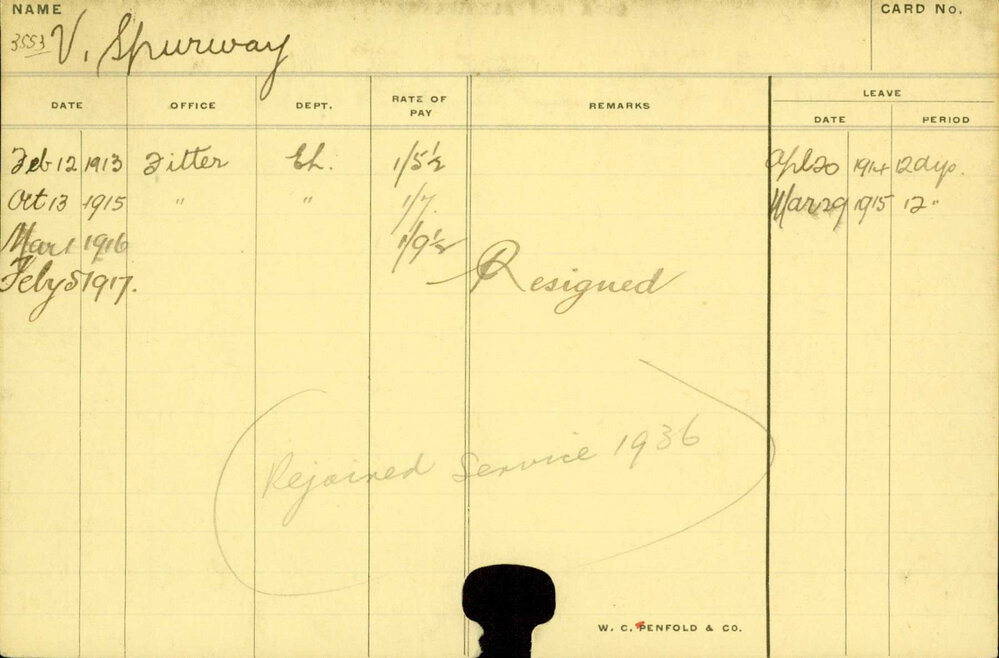 NAME CARD No.
3553 V. Spurway
DATE OFFICE DEPT. RATE OF PAY REMARKS LEAVE
DATE PERIOD
Feb 12 1913 Fitter EL. 1/5½ Apl 20 1914 12 dys.
Oct 13 1915 " " 1/7. Mar 29 1915 12 "
Mar 1 1916 1/9½
Feby 5 1917. Resigned
Rejoined Service 1936
W. C. PENFOLD & CO.